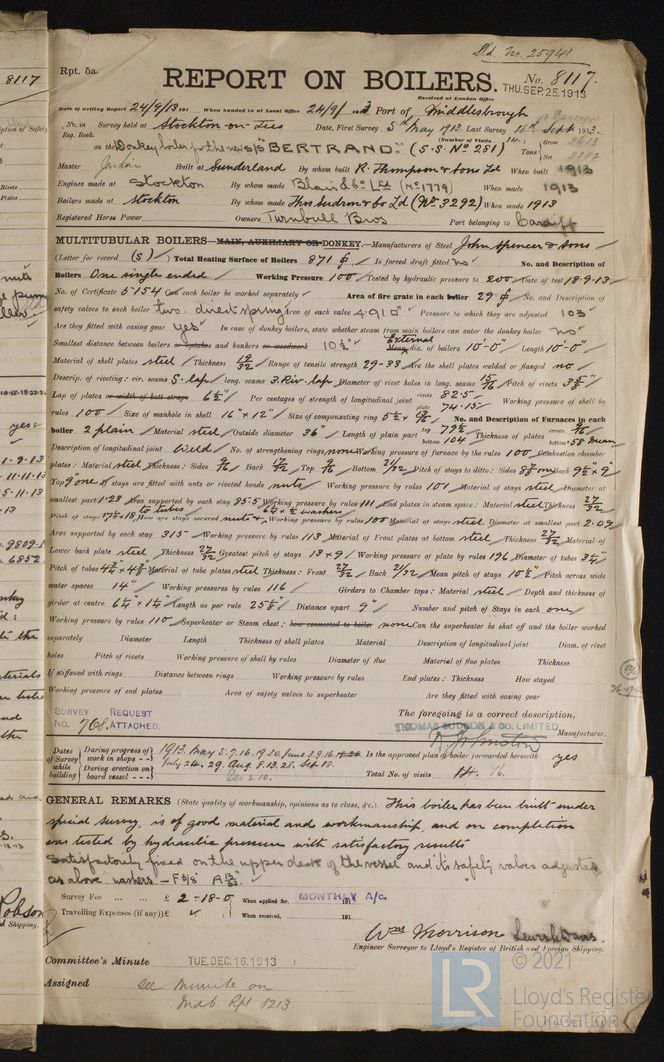 Rpt. 5a.
REPORT ON BOILERS.
No. 8117.
Received at London Office THU. SEP. 25 1913
Date of writing Report 24/9/13 191 When handed in at Local Office 24/9/ 13 Port of Middlesbrough
No. in Reg. Book. Survey held at Stockton-on-Tees Date, First Survey 5th May 1913 Last Survey 18th Sept 1913.
(Number of Visits 14)
on the Donkey boiler for the new S/S "BERTRAND." (S.S. No 251) Tons Gross 3613 Net
Master Built at Sunderland By whom built R. Thompson & Sons Ld When built 1913
Engines made at Stockton By whom made Blair & Co Ltd (No 1779) When made 1913
Boilers made at Stockton By whom made Thos Sudron & Co Ld (No. 3292) When made 1913
Registered Horse Power Owners Turnbull Bros Port belonging to Cardiff
MULTITUBULAR BOILERS MAIN, AUXILIARY OR DONKEY.—Manufacturers of Steel John Spencer & Sons
(Letter for record (S) ) Total Heating Surface of Boilers 871 Is forced draft fitted no No. and Description of
Boilers One single ended Working Pressure 100 Tested by hydraulic pressure to 200 Date of test 18.9.13
No. of Certificate 5154 Can each boiler be worked separately Area of fire grate in each boiler 29 No. and Description of
safety valves to each boiler two. direct spring Area of each valve 4.910" Pressure to which they are adjusted 103
Are they fitted with easing gear yes In case of donkey boilers, state whether steam from main boilers can enter the donkey boiler no
Smallest distance between boilers or uptakes and bunkers or woodwork 10½" External Mean dia. of boilers 10'-0" Length 10'-0"
Material of shell plates steel Thickness 19/32 Range of tensile strength 29-33 Are the shell plates welded or flanged no
Descrip. of riveting: cir. seams S. lap long. seams 3. Riv. lap Diameter of rivet holes in long. seams Pitch of rivets
Lap of plates or width of butt straps 6½" Per centages of strength of longitudinal joint rivets 82.5 plate 74.15 Working pressure of shell by
rules 100 Size of manhole in shell 16" x 12" Size of compensating ring No. and Description of Furnaces in each
boiler 2 plain Material steel Outside diameter 36" Length of plain part top 79½ bottom 104 Thickness of plates crown bottom
Description of longitudinal joint Weld No. of strengthening rings none Working pressure of furnace by the rules 100 Combustion chamber
plates: Material steel Thickness: Sides Back Top Bottom 21/32 Pitch of stays to ditto: Sides Back 9½ x 9
Top 9" one If stays are fitted with nuts or riveted heads nuts Working pressure by rules 101 Material of stays steel Diameter at
smallest part 1.23 Area supported by each stay 85.5 Working pressure by rules 111 End plates in steam space: Material steel Thickness 27/32
Pitch of stays 17½ x 18 How are stays secured nuts & washers Working pressure by rules 100 Material of stays steel Diameter at smallest part 2.09
Area supported by each stay 315 Working pressure by rules 113 Material of Front plates at bottom steel Thickness 27/32 Material of
Lower back plate steel Thickness 27/32 Greatest pitch of stays 13 x 9 Working pressure of plate by rules 196 Diameter of tubes 3¼"
Pitch of tubes Material of tube plates steel Thickness: Front 27/32 Back 21/32 Mean pitch of stays 10½" Pitch across wide
water spaces 14" Working pressures by rules 116 Girders to Chamber tops: Material steel Depth and thickness of
girder at centre 6¼ x 1¼ Length as per rule 25½ Distance apart 9" Number and pitch of Stays in each one
Working pressure by rules 110 Superheater or Steam chest: how connected to boiler none Can the superheater be shut off and the boiler worked
separately Diameter Length Thickness of shell plates Material Description of longitudinal joint Diam. of rivet
holes Pitch of rivets Working pressure of shell by rules Diameter of flue Material of flue plates Thickness
If stiffened with rings Distance between rings Working pressure by rules End plates: Thickness How stayed
Working pressure of end plates Area of safety valves to superheater Are they fitted with easing gear
SURVEY REQUEST
NO. 768 ATTACHED.
The foregoing is a correct description,
THOMAS SUDRON & CO. LIMITED,
R. Johnston Manufacturer.
Dates of Survey while building
During progress of work in shops - - 1913. May 5. 7. 16. 19. 30. June 3. 9. 16. July 24. 29. Aug. 8. 13. 28. Sep. 18.
During erection on board vessel - - - Dec 2. 10.
Is the approved plan of boiler forwarded herewith yes
Total No. of visits 14. 16.
GENERAL REMARKS (State quality of workmanship, opinions as to class, &c.) This boiler has been built under
special survey, is of good material and workmanship, and on completion
was tested by hydraulic pressure with satisfactory results
Satisfactorily fixed on the upper deck of the vessel and its safety valves adjusted
as above. washers - F 3/8" A 13/32"
Survey Fee ... ... £ 2 - 18 - 0 When applied for, MONTHLY A/c. 191
Travelling Expenses (if any) £ When received, 191
Wm Morrison Lewis Davis
Engineer Surveyor to Lloyd's Register of British and Foreign Shipping.
Committee's Minute TUE. DEC. 16. 1913
Assigned See minute on
Mdb. Rpt 8213
© 2021
LR
Lloyd's Register
Foundation